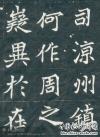 司涼州鎮
何作周之
嶷異於在